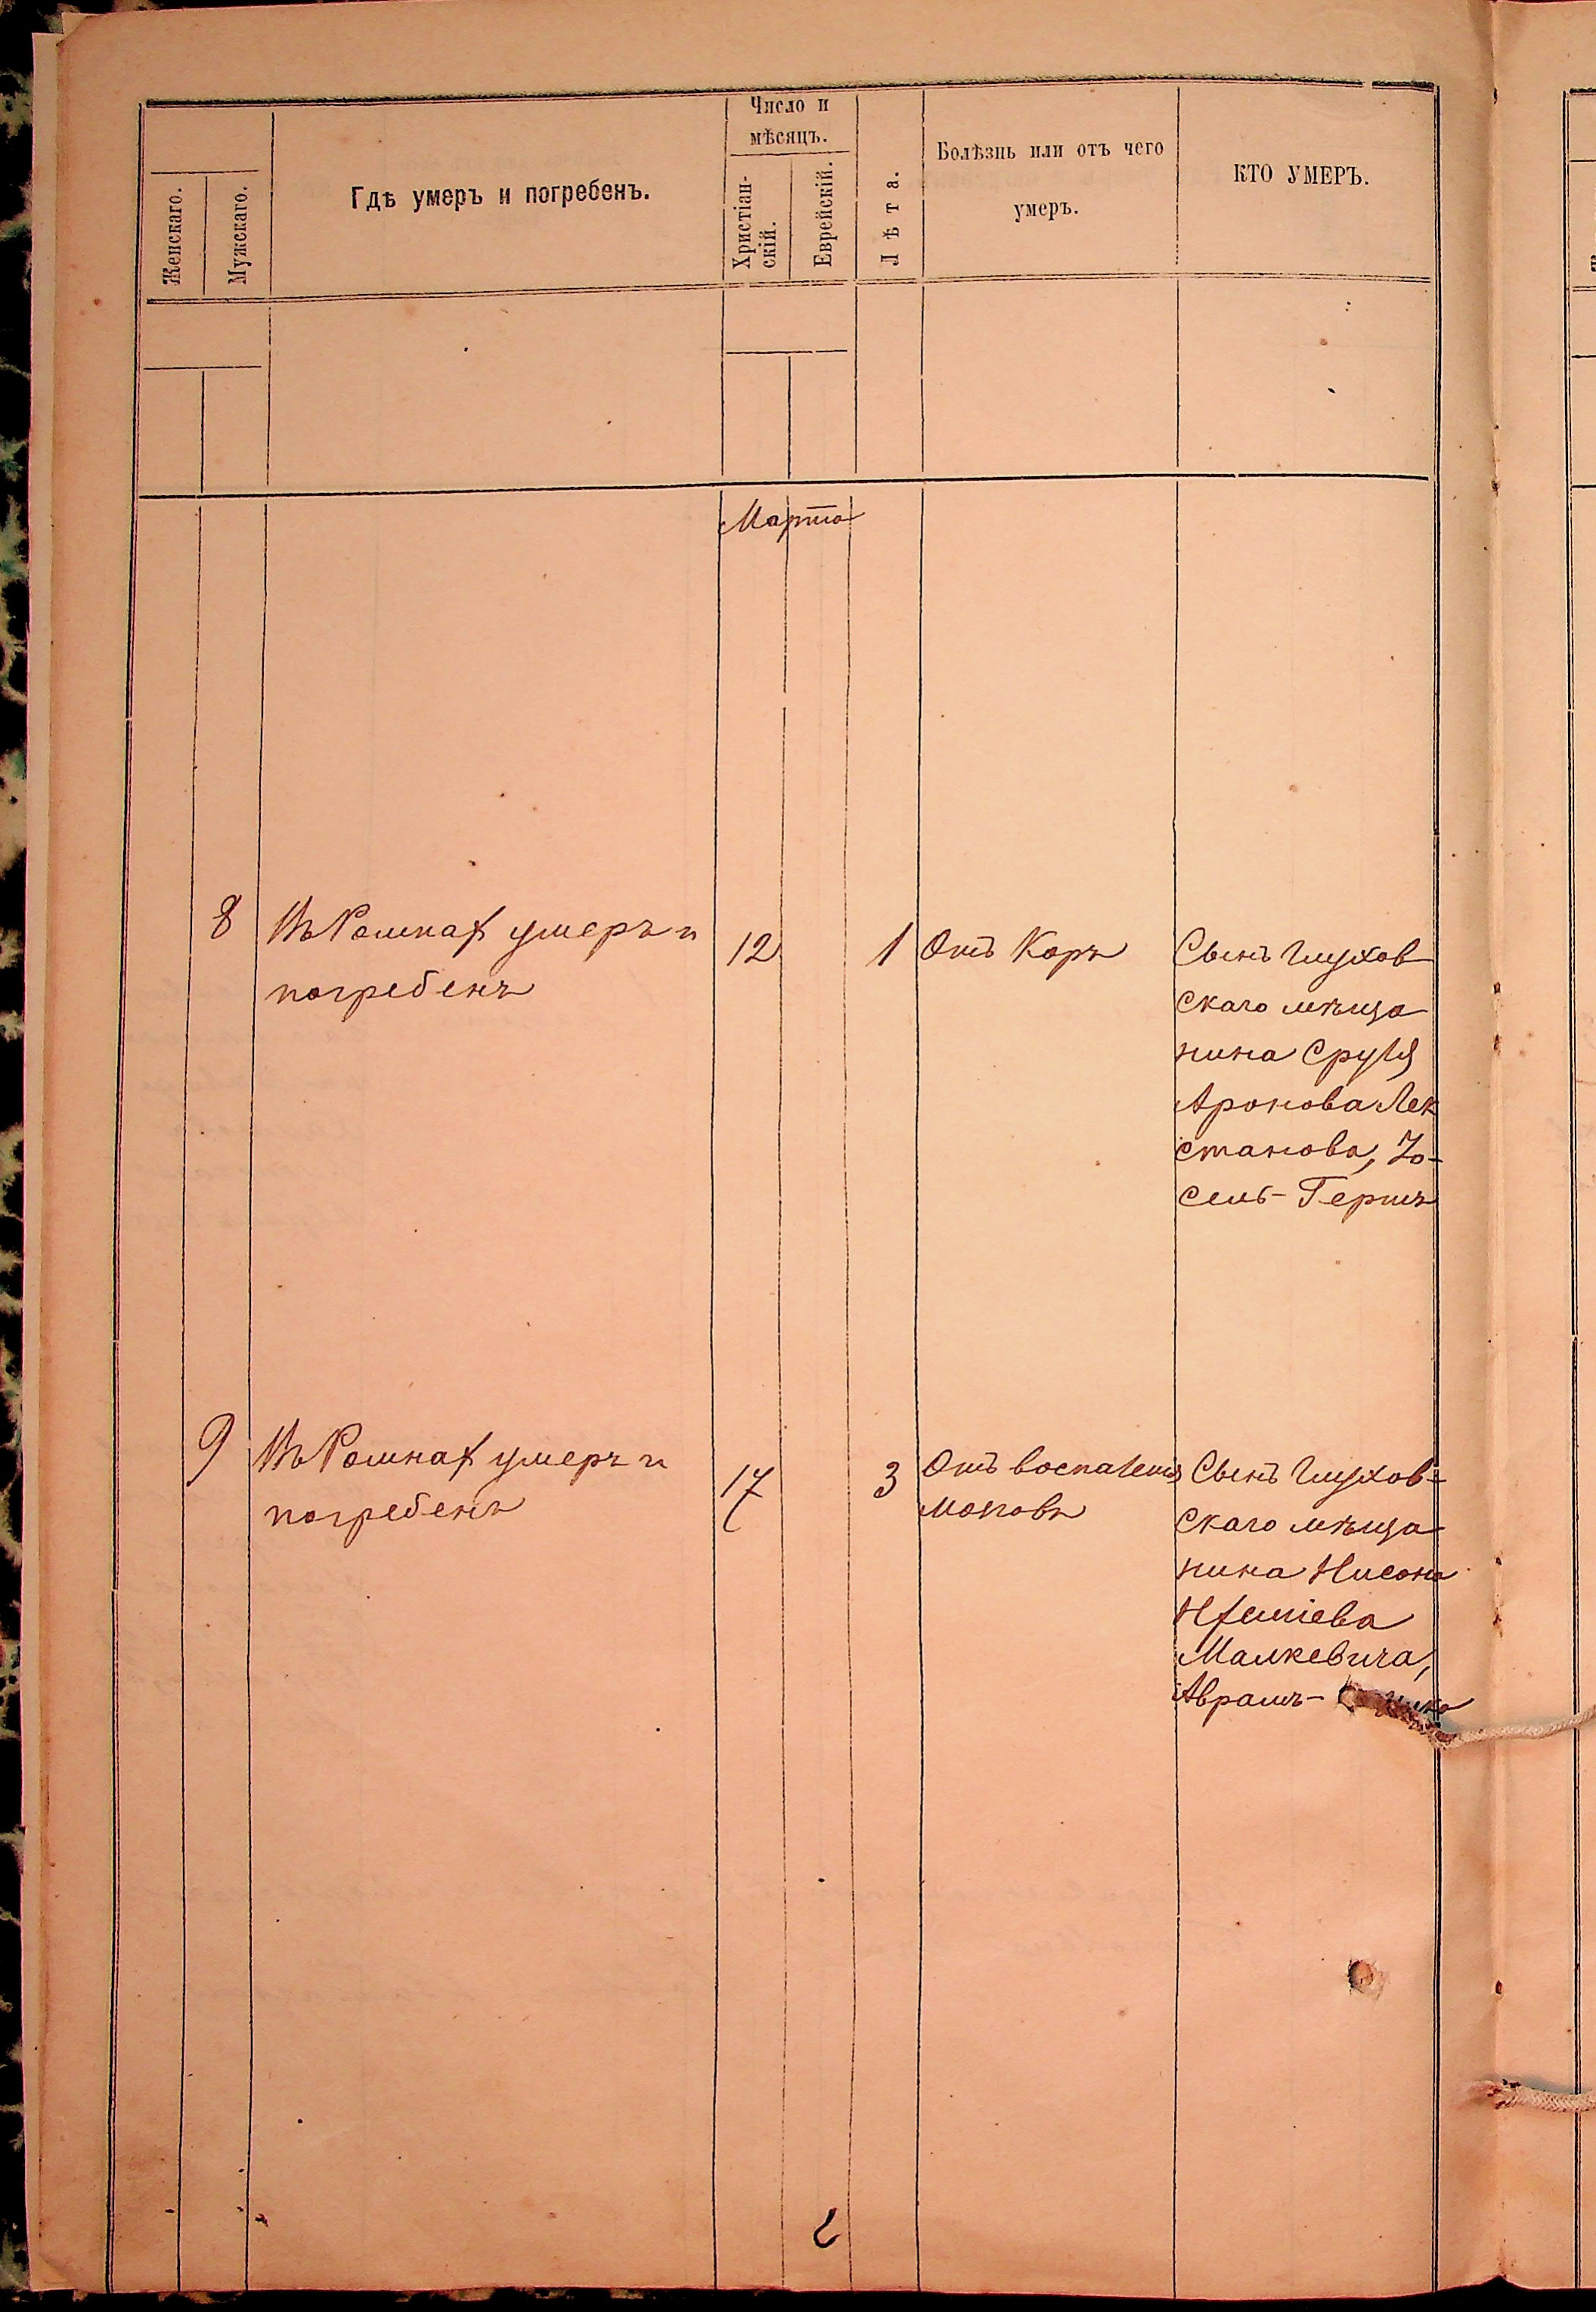 Число и
мѣсяцъ.
Женскаго.
Мужскаго.
Гдѣ умеръ и погребенъ.
Христіан-
скій.
Еврейскій.
Лѣта.
Болѣзнь или отъ чего
умеръ.
КТО УМЕРЪ.
Марта
8
Въ Ромнахъ умеръ и
погребенъ
12
1
Отъ Кори
Сынъ Глухов
скаго мѣща
нина Сруля
Аронова Лек
станова, Іо-
сель-Гершъ
9
Въ Ромнахъ умеръ и
погребенъ
17
3
Отъ воспаленія
мозговъ
Сынъ Глухов-
скаго мѣща
нина Нисона
Малкевича,
Аврамъ-